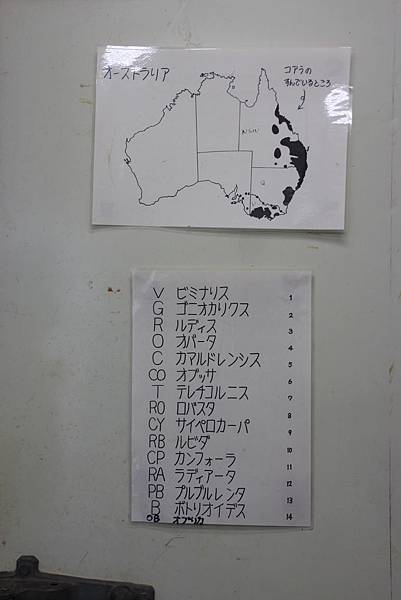 オーストラリア
コアラの
すんでいるところ
V ビミナリス 1
G ゴニオカリクス 2
R ルディス 3
O オバータ 4
C カマルドレンシス 5
CO オブッサ 6
T テレチコルニス 7
RO ロバスタ 8
CY サイペロカーパ 9
RB ルビダ 10
CP カンフォーラ 11
RA ラディアータ 12
PB プルプルレンタ 13
B ボトリオイデス 14
OB オブリカ